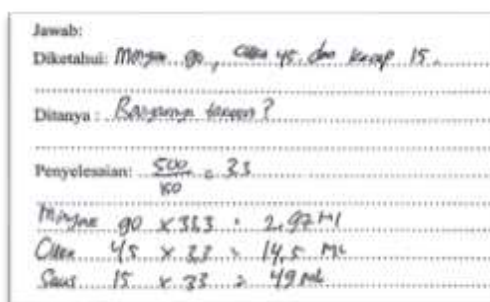 Jawab:
Diketahui: Minyak 90, Cuka 45 dan kecap 15.
Ditanya : Banyaknya
Penyelesaian: 500/150 = 3.3
Minyak 90 x 33,3 = 2,97 Ml
Cuka 45 x 3.3 = 14,5 ML
Saus 15 x 33 = 49 ml